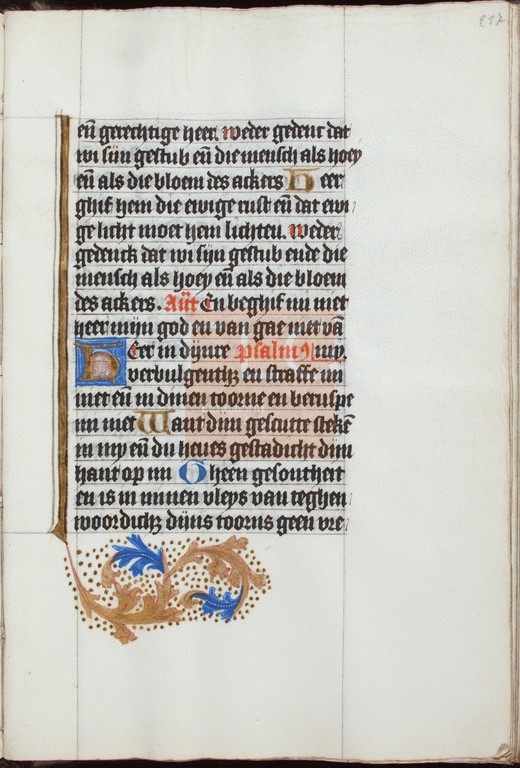 217
eñ gerechtige heer. weder gedenct dat
wi sijn gestub eñ die mensch als hoey
eñ als die bloem des ackers Heer
ghif hem die ewige rust eñ dat ewi
ge licht moet hem lichten. weder
gedenck dat wi sijn gestub ende die
mensch als hoey eñ als die bloem
des ackers. Añt En beghif mi niet
heer mijn god en van gae niet vā
Heer in dijnre psalm my.
verbulgentheyt en straffe mi
niet eñ in dinen toorne en beruspe
mi niet Want dijn gescutte stekē
in my eñ du heves gestadicht dijn
hant op mi Gheen gesontheit
en is in minen vleys van teghen
woordicheyt dijns toorns geen vre